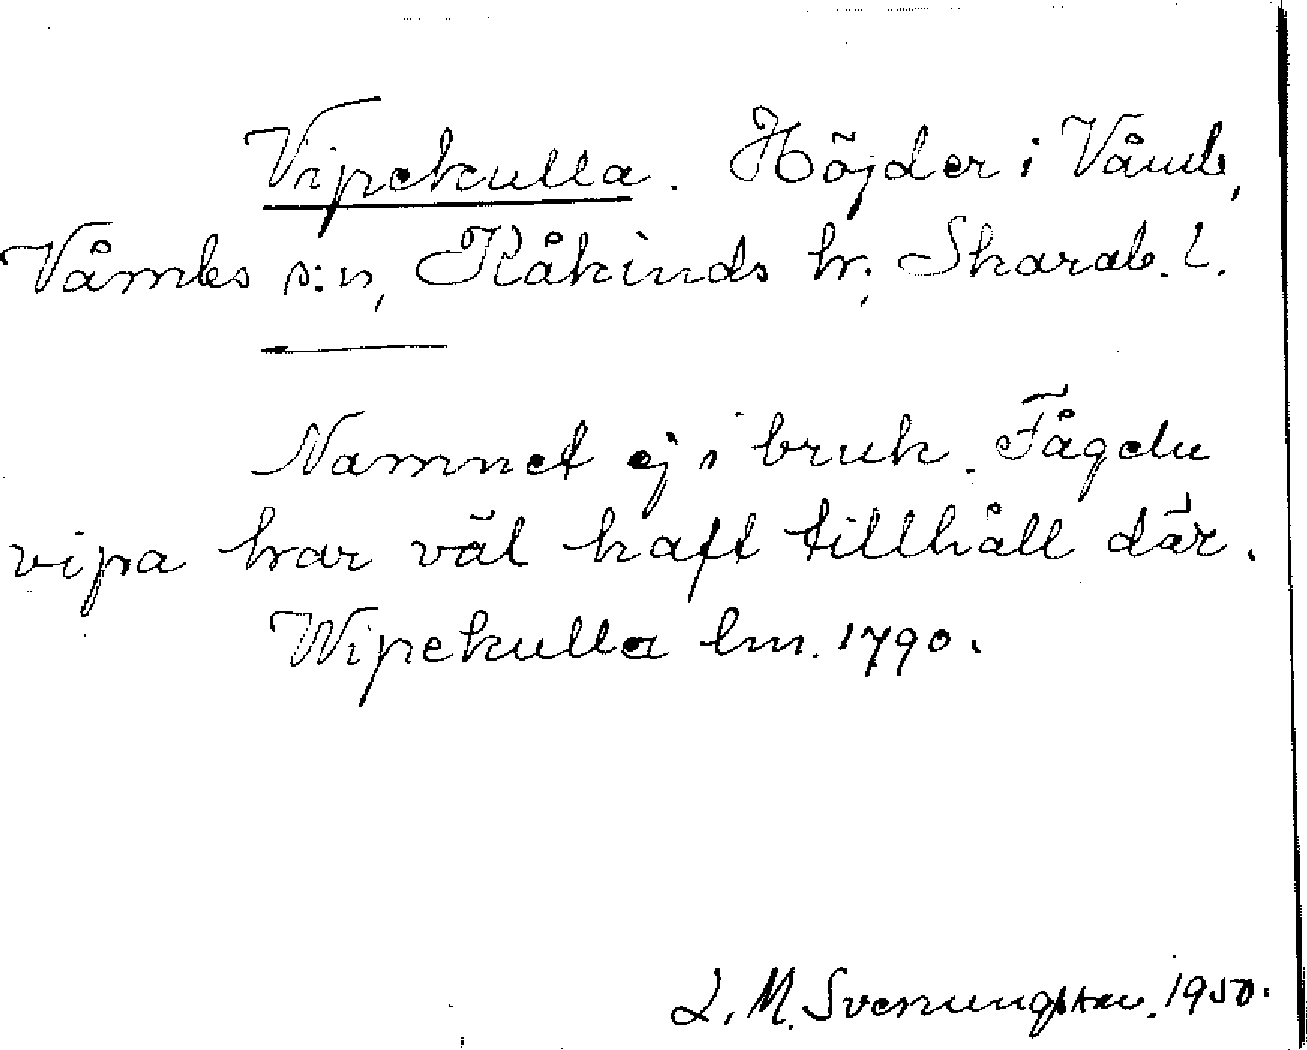 Vipekulla. Höjder i Våmb,
Våmbs s:n, Kåkinds hr; Skarab. l.
Namnet ej i bruk. Fågeln
vipa har väl haft tillhåll där.
Wipekulla lm. 1790.
L. M. Svenungsson. 1950.